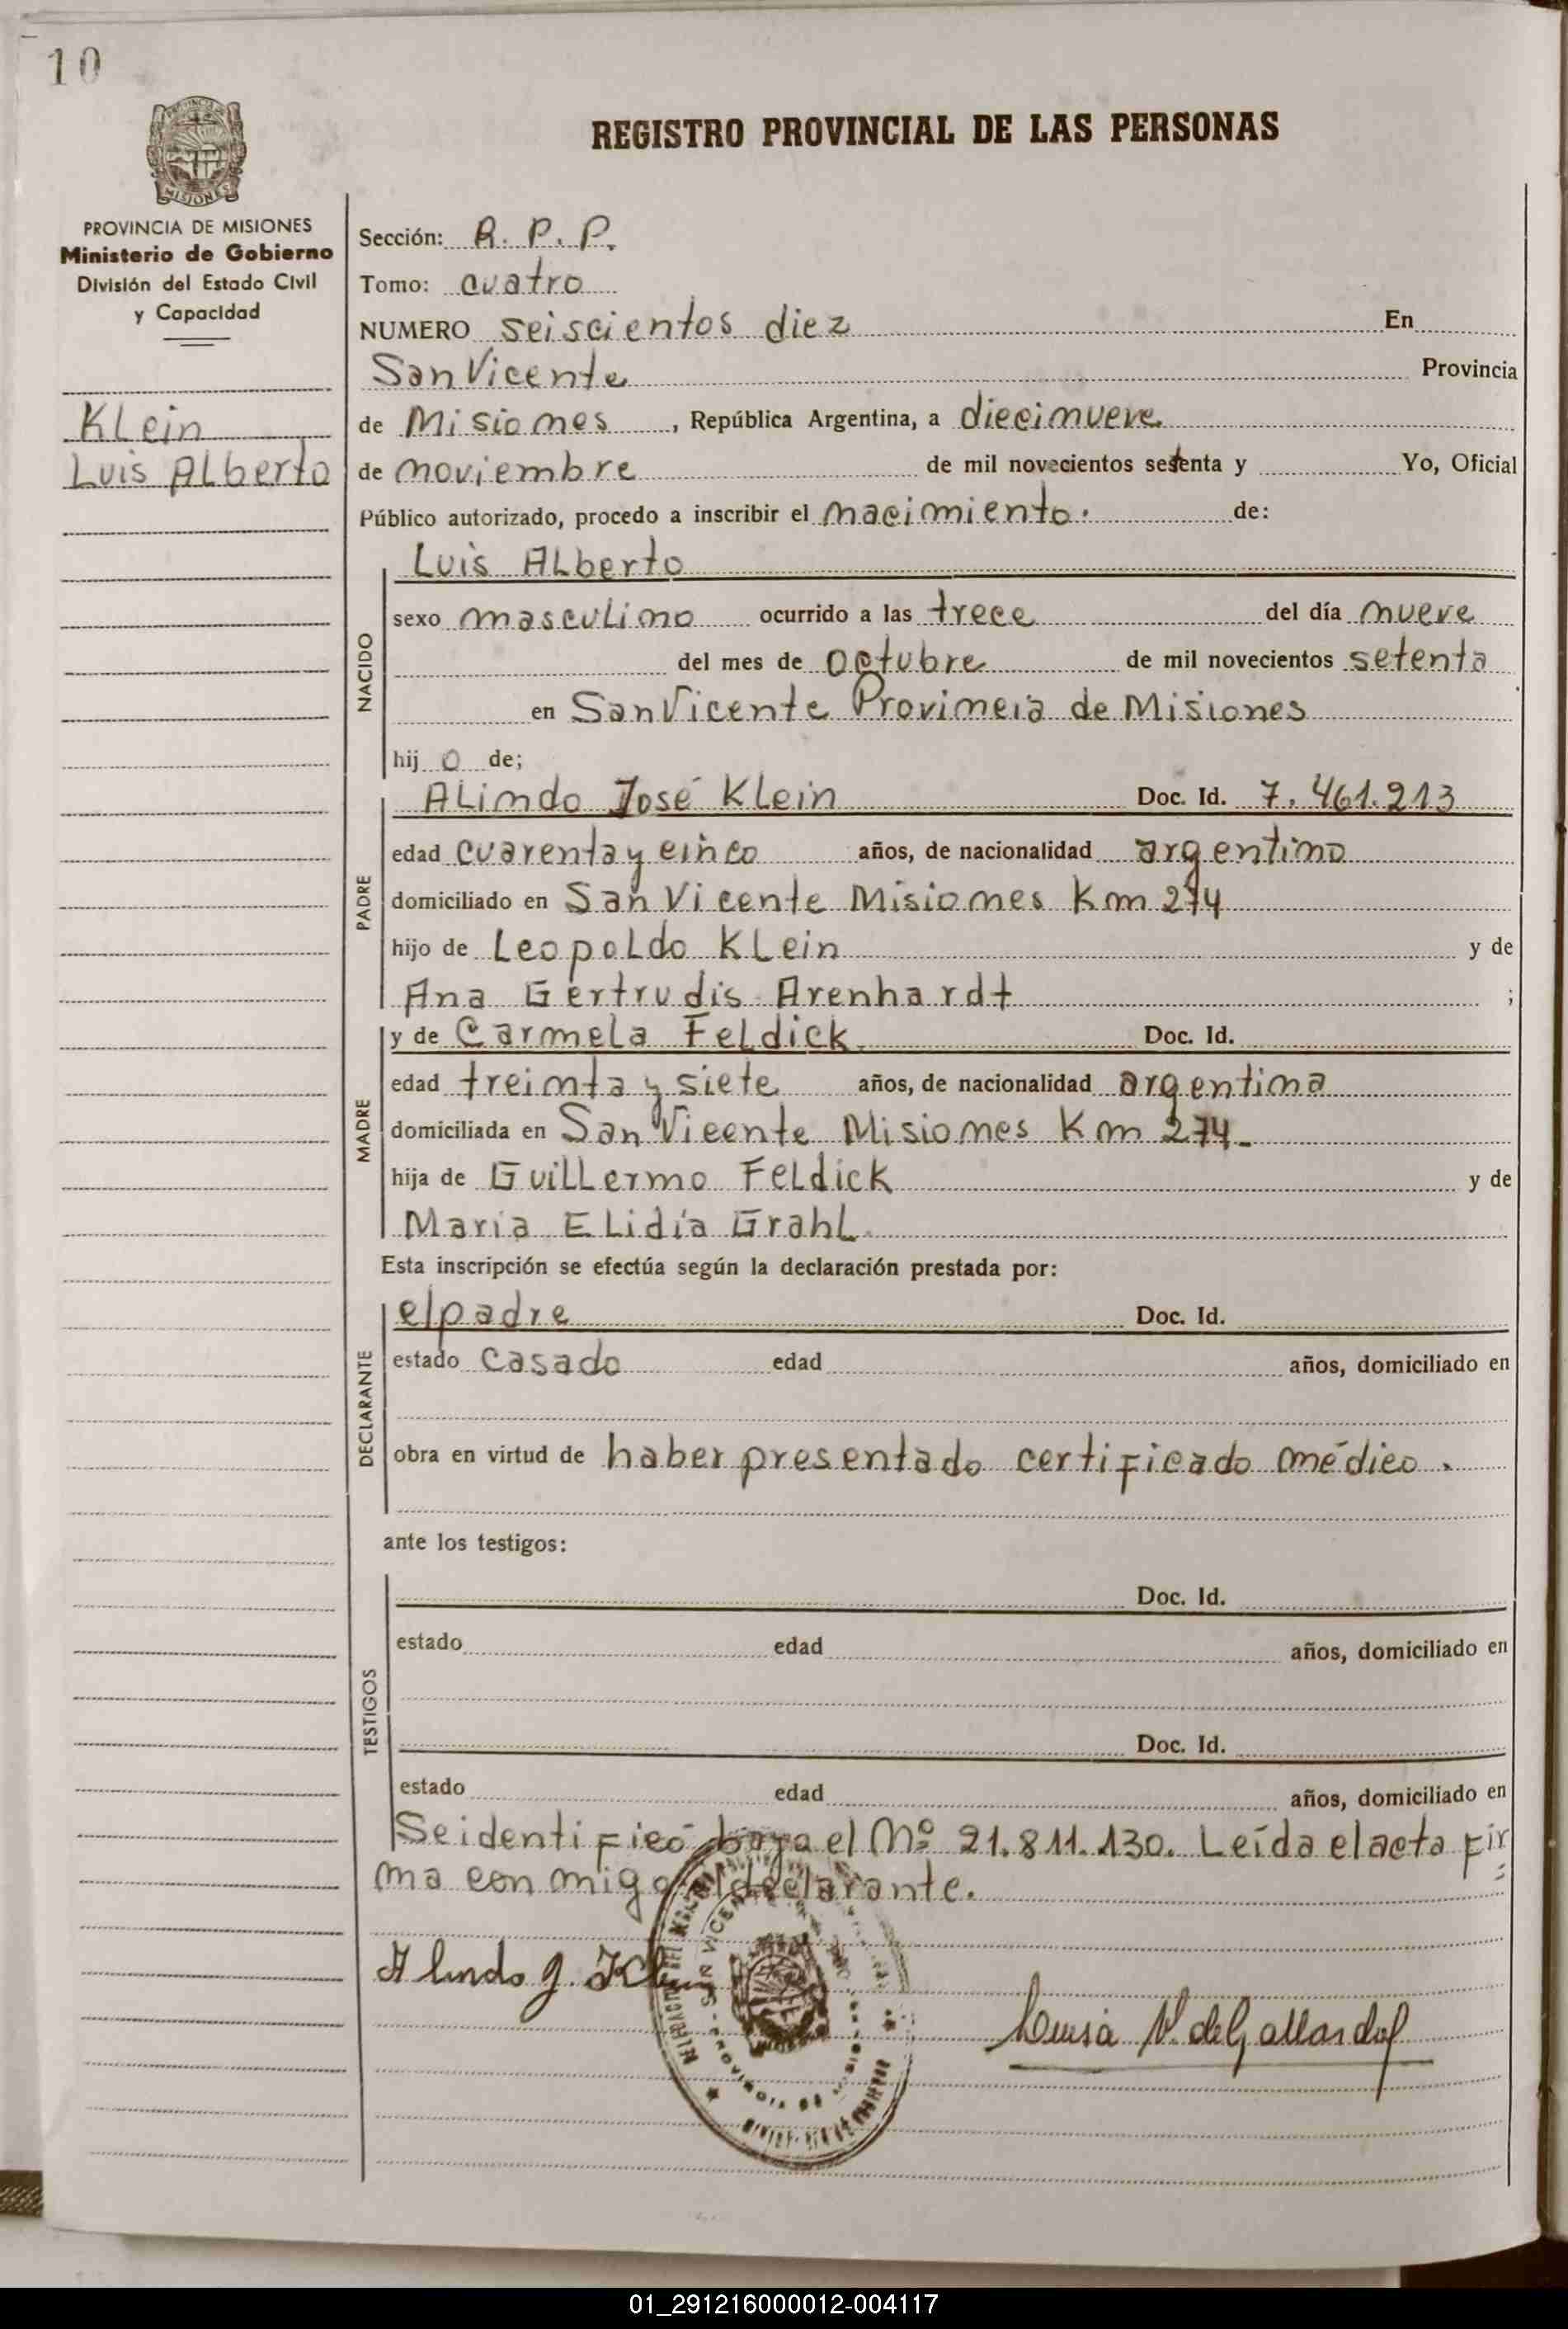 10
REGISTRO PROVINCIAL DE LAS PERSONAS
MISIONES
PROVINCIA DE MISIONES
Ministerio de Gobierno
División del Estado Civil
y Capacidad
Klein
Luis Alberto
Sección: R. P. P.
Tomo: cuatro
NUMERO seiscientos diez En
San Vicente Provincia
de Misiones, República Argentina, a diecinueve
de noviembre de mil novecientos setenta y Yo, Oficial
Público autorizado, procedo a inscribir el nacimiento. de:
NACIDO
Luis Alberto
sexo masculino ocurrido a las trece del día nueve
del mes de octubre de mil novecientos setenta
en San Vicente Provincia de Misiones
hijo de;
PADRE
Alindo José Klein Doc. Id. 7.461.213
edad cuarenta y cinco años, de nacionalidad argentino
domiciliado en San Vicente Misiones Km 274
hijo de Leopoldo Klein y de
Ana Gertrudis Arenhardt ;
MADRE
y de Carmela Feldick Doc. Id.
edad treinta y siete años, de nacionalidad argentina
domiciliada en San Vicente Misiones Km 274-
hija de Guillermo Feldick y de
María Elidía Grahl.
Esta inscripción se efectúa según la declaración prestada por:
DECLARANTE
el padre Doc. Id.
estado casado edad años, domiciliado en
obra en virtud de haber presentado certificado médico.
ante los testigos:
TESTIGOS
Doc. Id.
estado edad años, domiciliado en
Doc. Id.
estado edad años, domiciliado en
Se identificó bajo el Nº 21.811.130. Leída el acta fir
ma conmigo el declarante.
Alindo J. Klein
Luisa V. de Gallardo
01_291216000012-004117